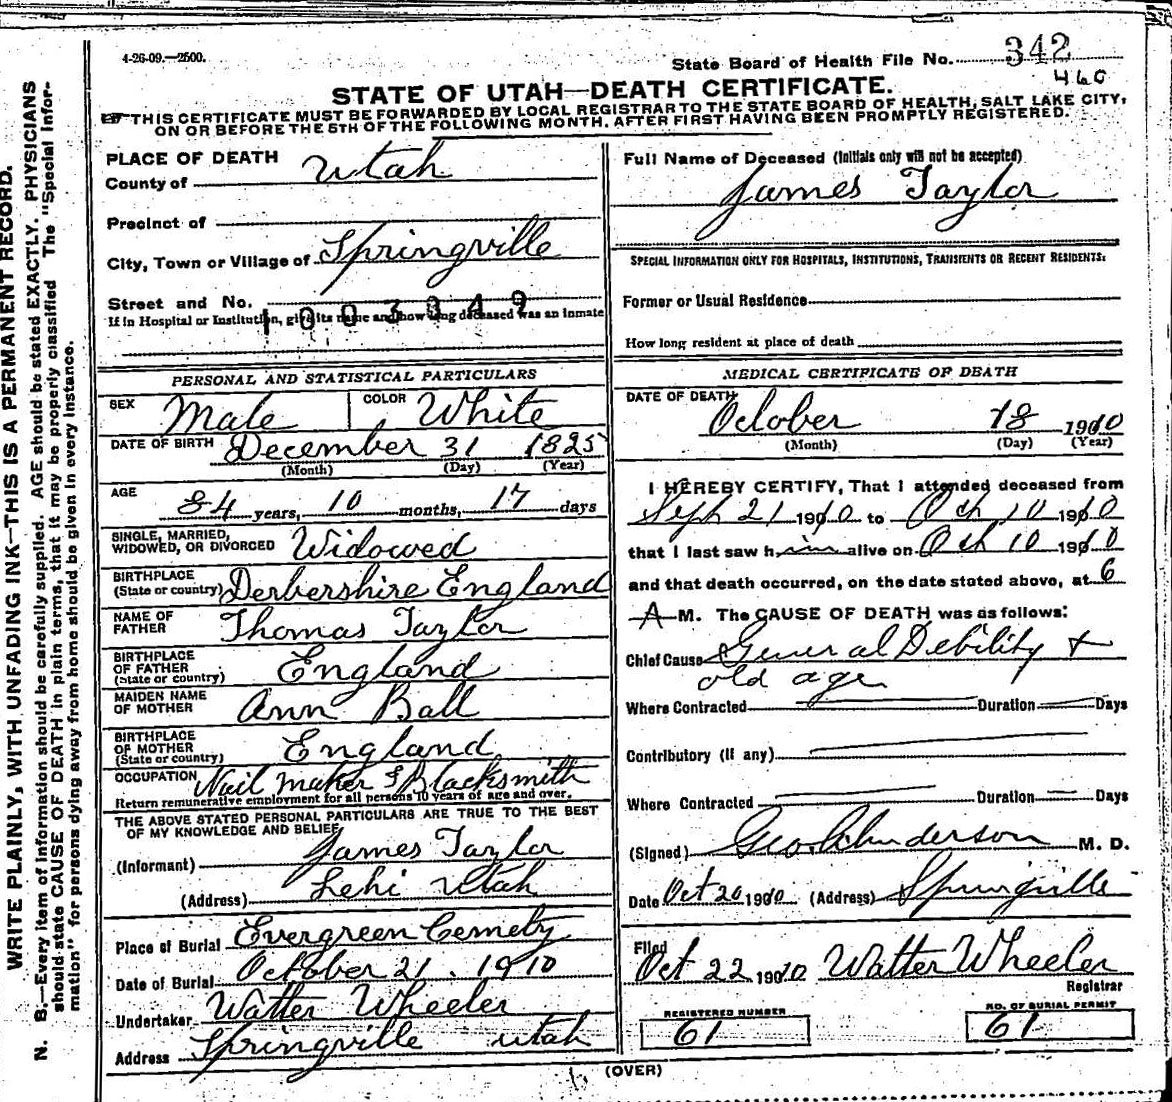 4-26-09.—2500.
State Board of Health File No. 342
460
STATE OF UTAH—DEATH CERTIFICATE.
THIS CERTIFICATE MUST BE FORWARDED BY LOCAL REGISTRAR TO THE STATE BOARD OF HEALTH, SALT LAKE CITY,
ON OR BEFORE THE 5TH OF THE FOLLOWING MONTH. AFTER FIRST HAVING BEEN PROMPTLY REGISTERED.
PLACE OF DEATH
County of Utah
Precinct of
City, Town or Village of Springville
Street and No.
If in Hospital or Institution, give its name and how long deceased was an inmate
1003049
PERSONAL AND STATISTICAL PARTICULARS
SEX Male COLOR White
DATE OF BIRTH December 31 1825
(Month) (Day) (Year)
AGE 84 years, 10 months, 17 days
SINGLE, MARRIED,
WIDOWED, OR DIVORCED Widowed
BIRTHPLACE
(State or country) Derbershire England
NAME OF
FATHER Thomas Taylor
BIRTHPLACE
OF FATHER
(State or country) England
MAIDEN NAME
OF MOTHER Ann Ball
BIRTHPLACE
OF MOTHER
(State or country) England
OCCUPATION Nail maker & Blacksmith
Return remunerative employment for all persons 10 years of age and over.
THE ABOVE STATED PERSONAL PARTICULARS ARE TRUE TO THE BEST
OF MY KNOWLEDGE AND BELIEF
(Informant) James Taylor
(Address) Lehi Utah
Place of Burial Evergreen Cemety
Date of Burial October 21. 1910
Undertaker Walter Wheeler
Address Springville Utah
Full Name of Deceased (Initials only will not be accepted)
James Taylor
SPECIAL INFORMATION ONLY FOR HOSPITALS, INSTITUTIONS, TRANSIENTS OR RECENT RESIDENTS:
Former or Usual Residence
How long resident at place of death
MEDICAL CERTIFICATE OF DEATH
DATE OF DEATH October 18 1910
(Month) (Day) (Year)
I HEREBY CERTIFY, That I attended deceased from
Sept 21 1910 to Oct 10 1910
that I last saw him alive on Oct 10 1910
and that death occurred, on the date stated above, at 6
A M. The CAUSE OF DEATH was as follows:
Chief Cause General Debility +
old age
Where Contracted Duration Days
Contributory (if any)
Where Contracted Duration Days
(Signed) Geo Anderson M. D.
Date Oct 20 1910 (Address) Springville
Filed
Oct 22 1910 Walter Wheeler
Registrar
REGISTERED NUMBER
61
NO. OF BURIAL PERMIT
61
(OVER)
WRITE PLAINLY, WITH UNFADING INK—THIS IS A PERMANENT RECORD.
N. B.—Every item of information should be carefully supplied. AGE should be stated EXACTLY. PHYSICIANS
should state CAUSE OF DEATH in plain terms, that it may be properly classified The "Special Infor-
mation" for persons dying away from home should be given in every instance.